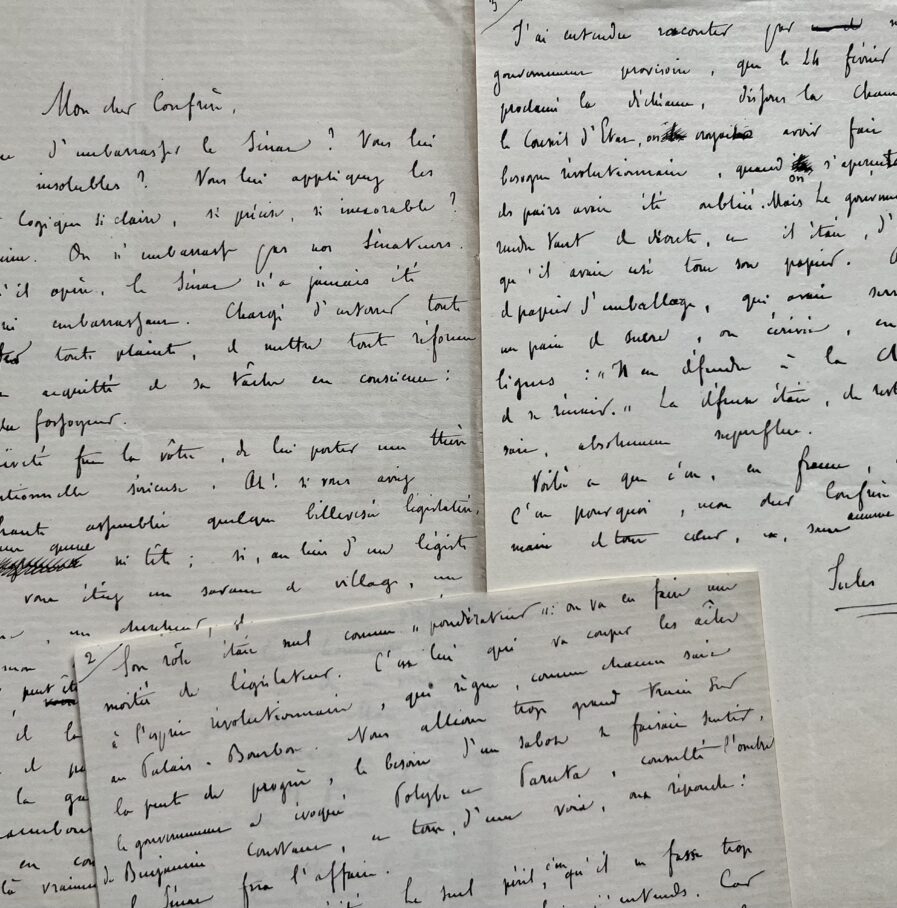 Mon cher Confrère,
d'embarrasser le Sénat ? Vous lui
insolubles ? Vous lui appliquez les
logique si claire, si précise, si inexorable ?
On n'embarrasse pas nos Sénateurs.
qu'il opère, le Sénat n'a jamais été
embarrassant. Chargé d'enterrer toute
toute plainte, de mettre toute réforme
acquitté de sa tâche en conscience :
du fossoyeur.
fut la vôtre, de lui porter une thèse
sérieuse. Ah ! si vous aviez
haute assemblée quelque billevesée législative,
queue ni tête ; si, au lieu d'un légiste
vous étiez un savant de village, un
un chercheur,
peut
il la
la
en
vraiment
2
Son rôle était nul comme "pondérateur" : on va en faire une
moitié de législateur. C'est lui qui va couper les ailes
à l'esprit révolutionnaire, qui règne, comme chacun sait
au Palais-Bourbon. Nous allions trop grand train sur
la pente du progrès, le besoin d'un sabot se faisait sentir.
Le gouvernement a évoqué Polybe et Paruta, consulté l'ombre
de Benjamin Constant, et tous, d'une voix, ont répondu :
le Sénat fera l'affaire.
Le seul péril, c'est qu'il en fasse trop
j'entends. Car
3
J'ai entendu raconter par
gouvernement provisoire, que le 24 février
proclamé la déchéance, dispous la Cham
le Conseil d'Etat, on croyait avoir fait
besogne révolutionnaire, quand on s'aperçut
des pairs avait été oubliée. Mais le gouverne
rendu tant de décrets, et il était, d'
qu'il avait usé tout son papier.
de papier d'emballage, qui avait serv
un pain de sucre, on écrivit, en
lignes : "Il est défendu à la Ch
de se réunir." La défense était, du reste
absolument superflue.
Voilà ce que c'est, en France,
C'est pourquoi, mon cher Confrère
main et tout cœur, et, sans aucune
Jules